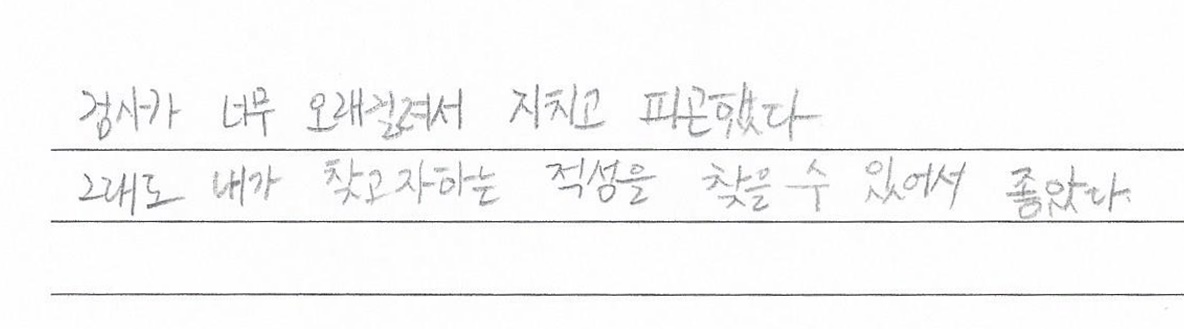 검사가 너무 오래걸려서 지치고 피곤했다
그래도 내가 찾고자하는 적성을 찾을 수 있어서 좋았다.